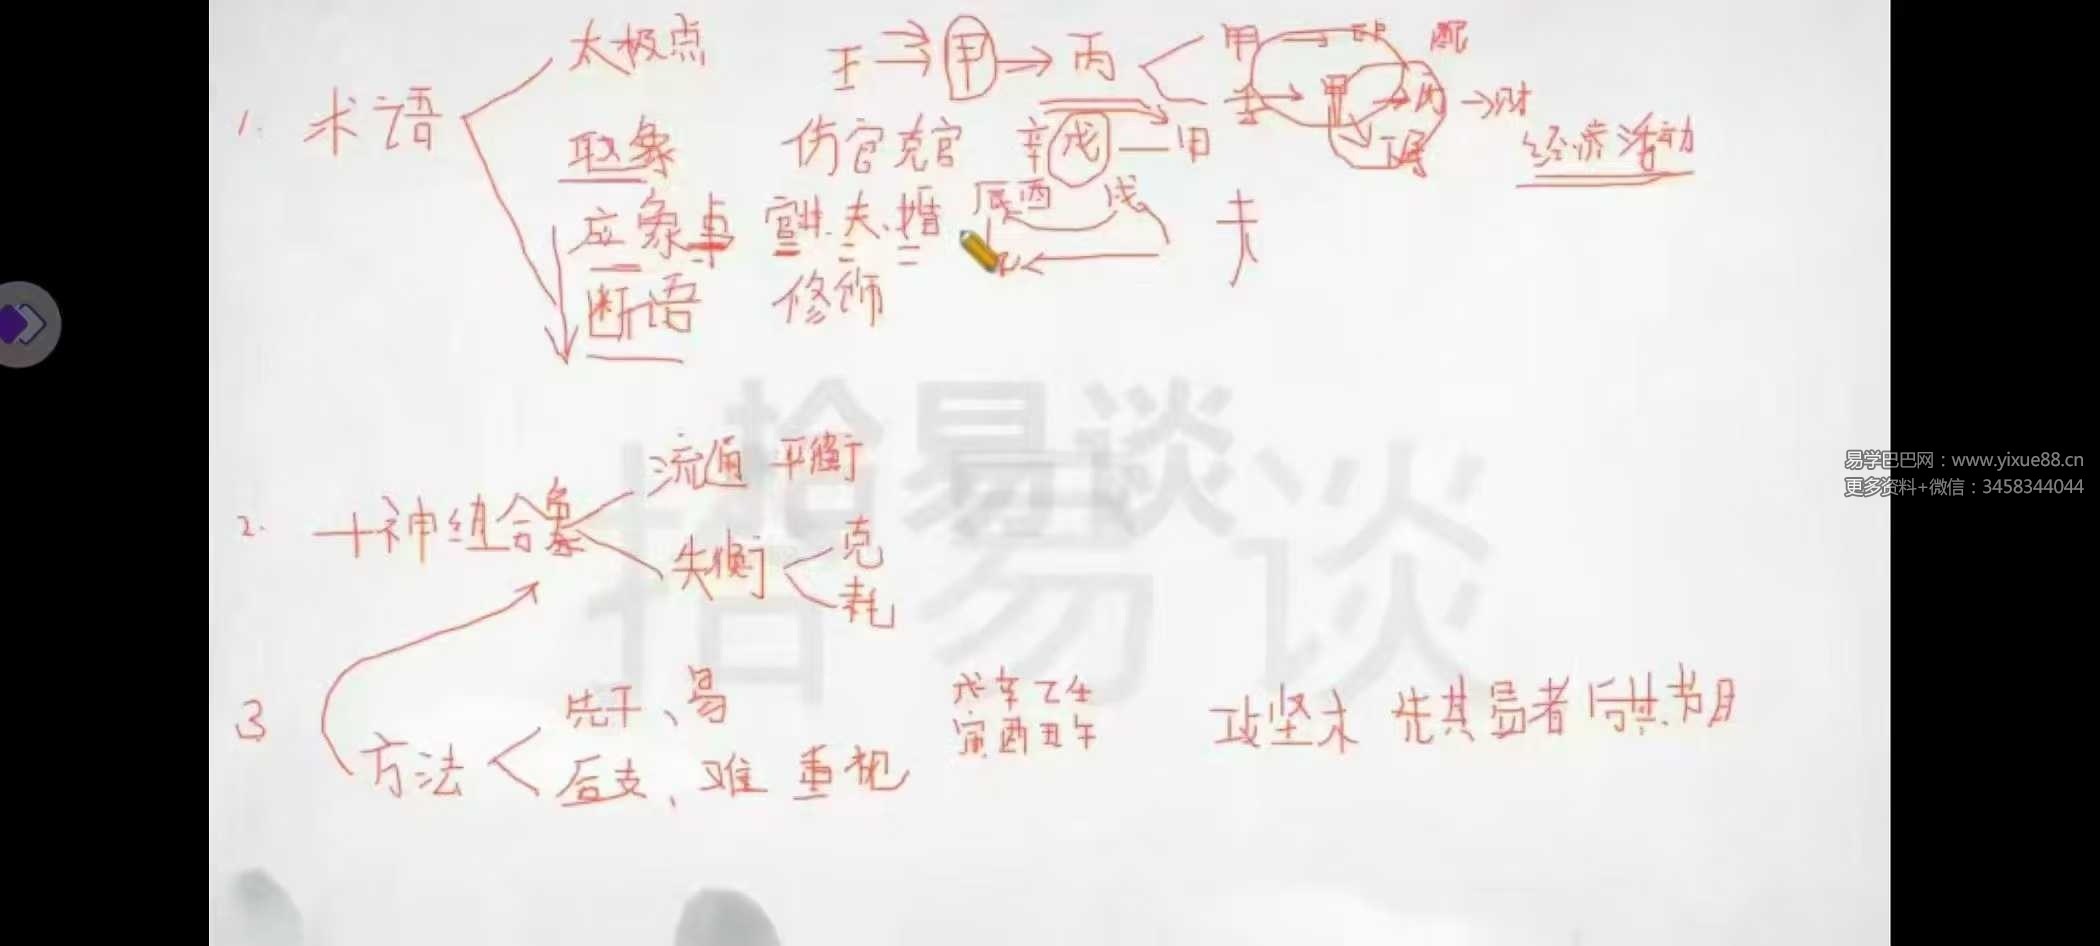 太极点
壬 甲 丙 甲 配
1. 术语 壬 甲 丙 财
取象 伤官克官 辛 戊 甲 经济活动
应象 官非、夫、婚 辰酉 戌 夫
断语 修饰
拾易谈
拾易谈
流通 平衡
2. 十神组合象
失衡 克
耗
3 方法
先干、易 戊辛乙壬
后支、难 重视 寅酉丑午
攻坚木 先其易者 后其节目
易学巴巴网：www.yixue88.cn
更多资料+微信：3458344044